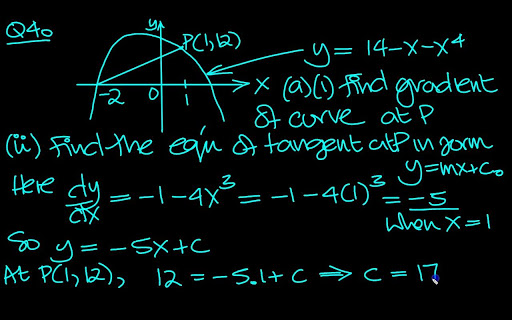 Q4.
y
P(1,12)
y = 14-x-x⁴
-2 0 1 x
(a)(i) find gradient
of curve at P
(ii) Find the eq'n of tangent at P in form
y=mx+c.
Here dy/dx = -1-4x³ = -1-4(1)³ = -5
when x=1
So y = -5x+c
At P(1,12), 12 = -5.1+c ⇒ c = 17